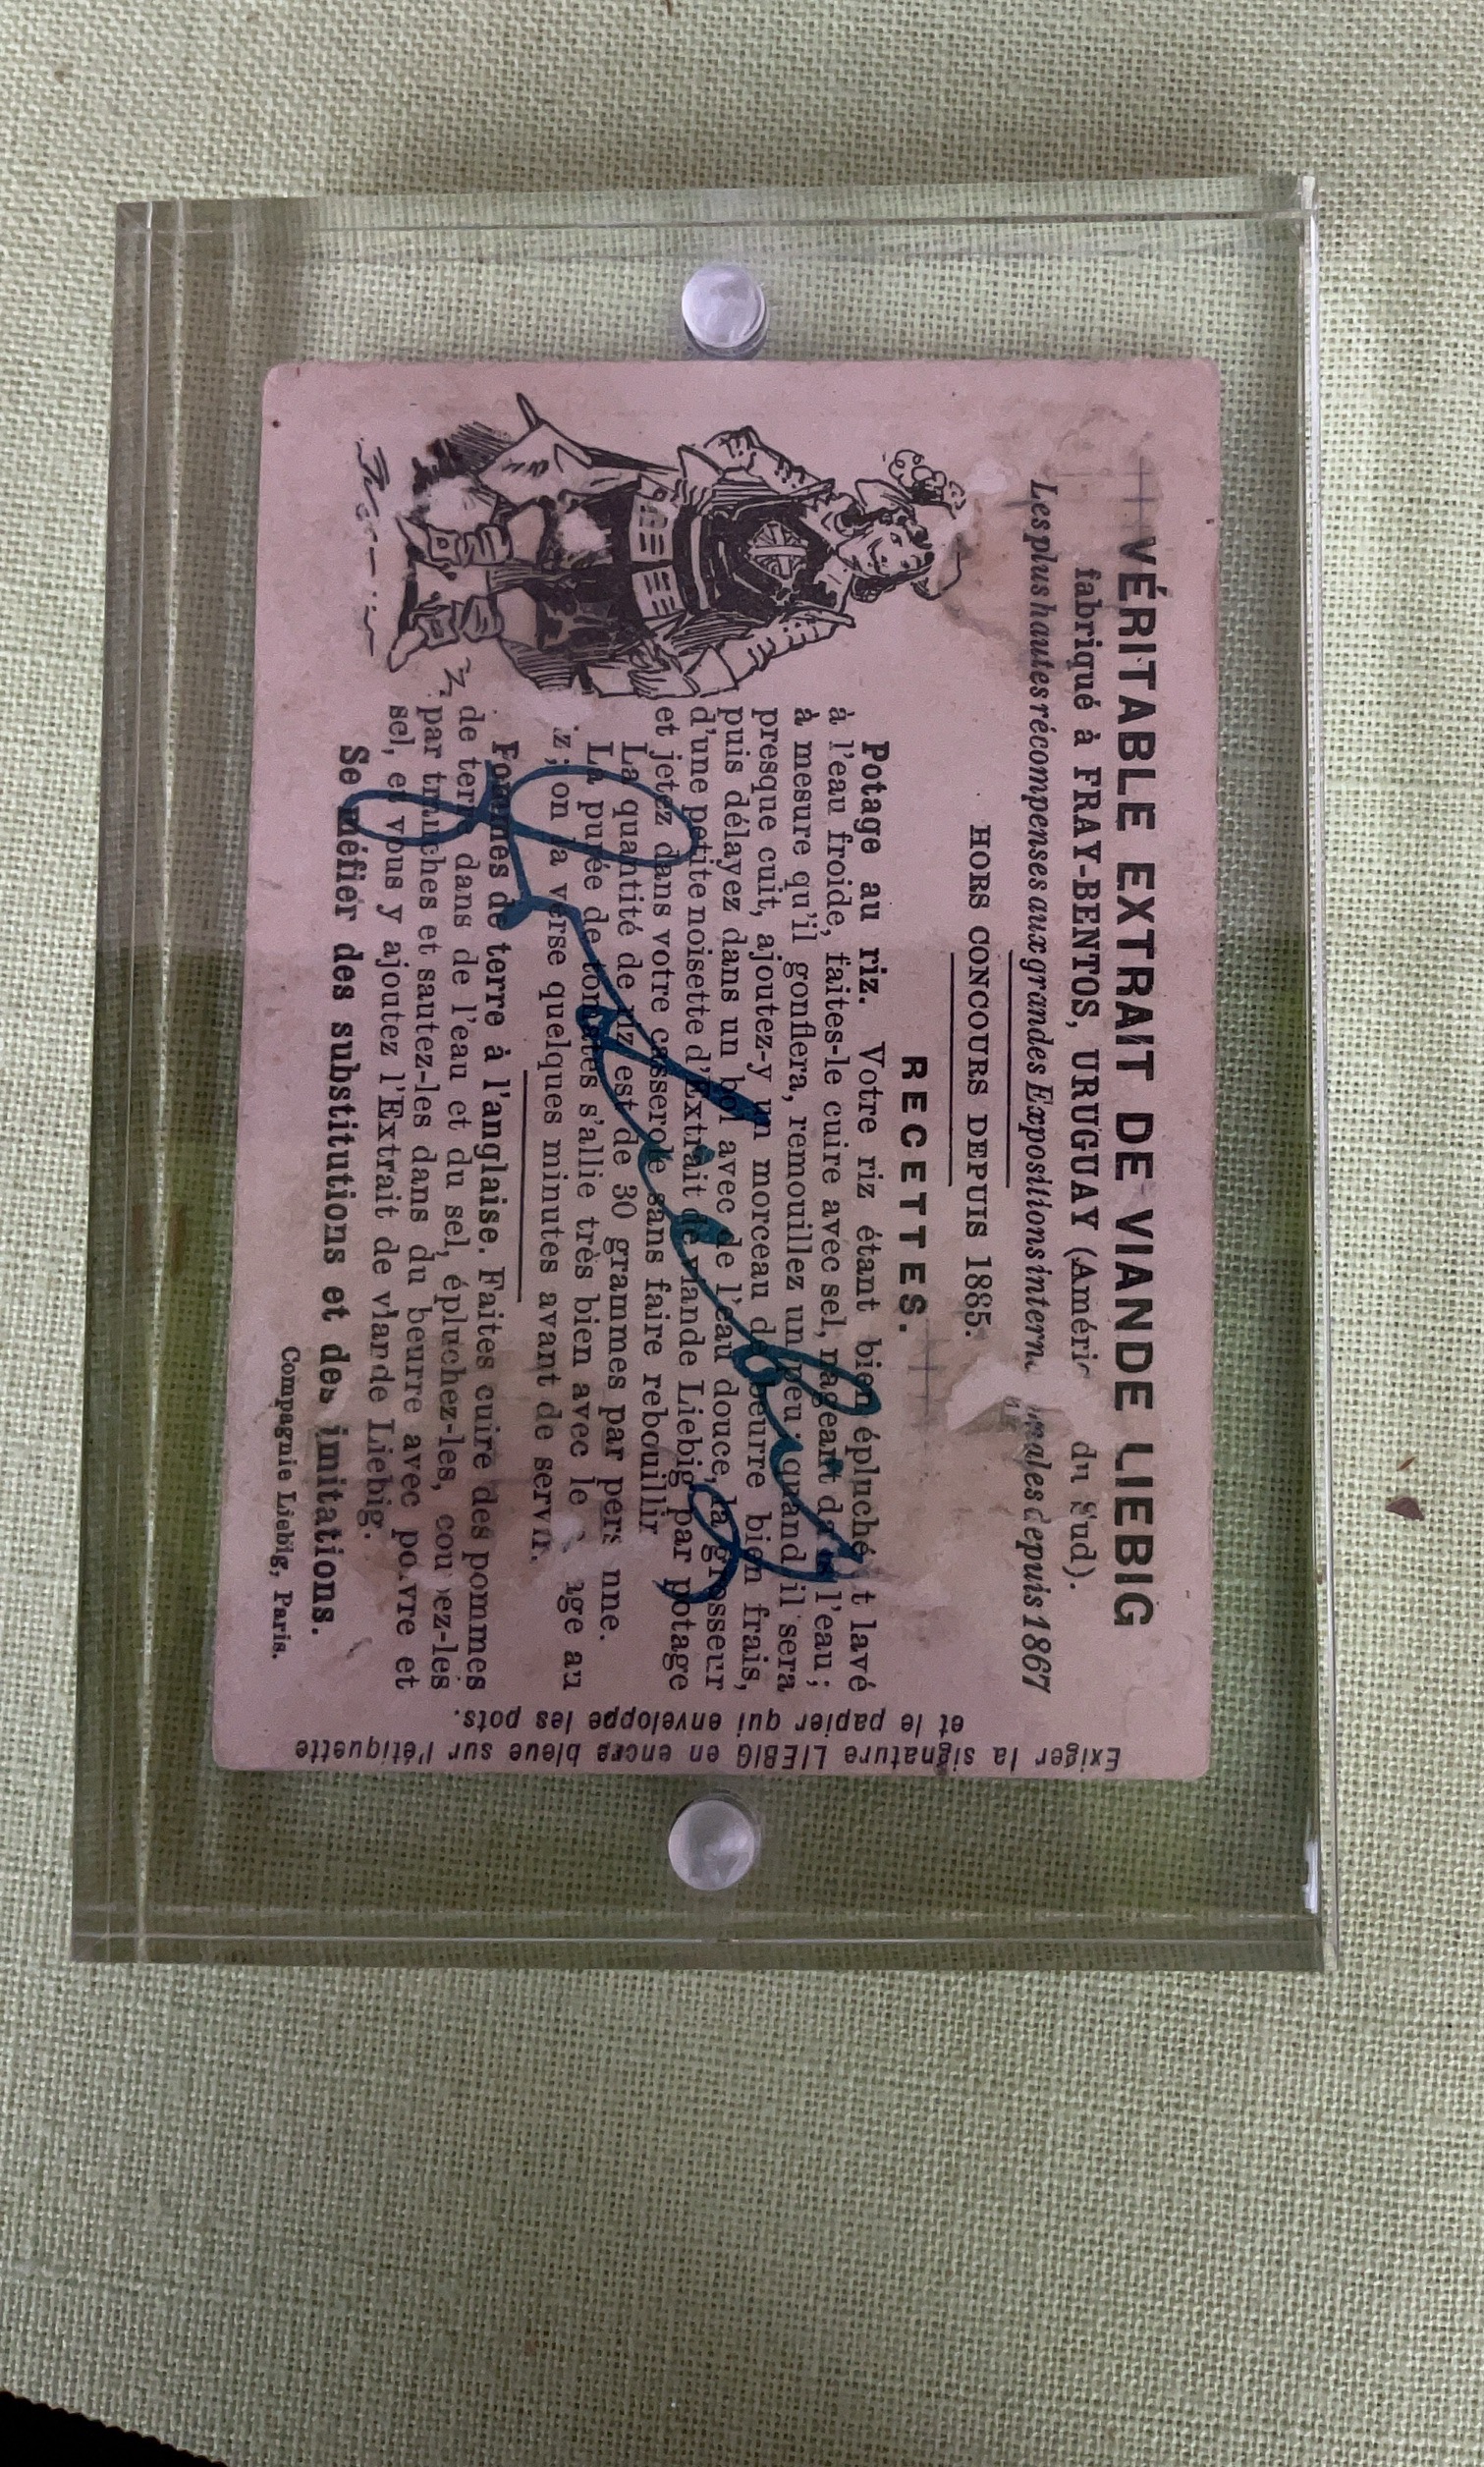 VÉRITABLE EXTRAIT DE VIANDE LIEBIG
fabriqué à FRAY-BENTOS, URUGUAY (Améri du Sud).
Les plus hautes récompenses aux grandes Expositions intern nales depuis 1867
HORS CONCOURS DEPUIS 1885.
RECETTES.
Potage au riz. Votre riz étant bien épluché t lavé
à l'eau froide, faites-le cuire avec sel, nageant da l'eau;
à mesure qu'il gonflera, remouillez un peu; quand il sera
presque cuit, ajoutez-y un morceau de beurre bien frais,
puis délayez dans un bol avec de l'eau douce, la grosseur
d'une petite noisette d'Extrait de viande Liebig par potage
et jetez dans votre casserole sans faire rebouillir
La quantité de riz est de 30 grammes par pers nne.
La purée de tomates s'allie très bien avec le age au
z; on la verse quelques minutes avant de servir.
Pommes de terre à l'anglaise. Faites cuire des pommes
de terre dans de l'eau et du sel, épluchez-les, cou ez-les
par tranches et sautez-les dans du beurre avec poivre et
sel, et vous y ajoutez l'Extrait de viande Liebig.
Se méfier des substitutions et des imitations.
Compagnie Liebig, Paris.
J v Liebig
Exiger la signature LIEBIG en encre bleue sur l'étiquette
et le papier qui enveloppe les pots.